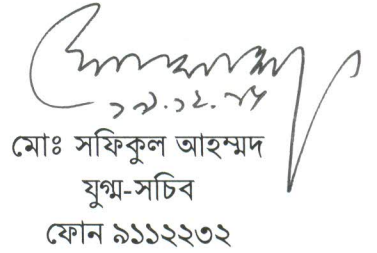 মোঃ সফিকুল আহম্মদ
যুগ্ম-সচিব
ফোন ৯১১২২৩২